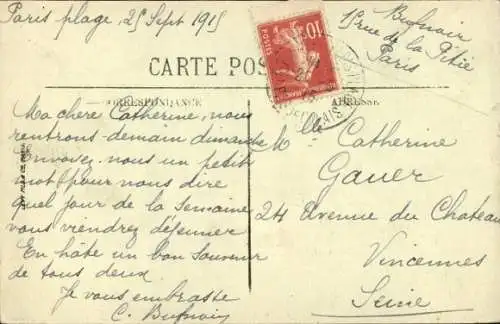 Paris plage 25 Sept 1915
Bufnoir
15 rue de la Pitié
Paris
10
POSTES
CARTE POS
CORRESPONDANCE
ADRESSE
Ma chère Catherine, nous
rentrons demain dimanche
Envoyez-nous un petit
mot pour nous dire
quel jour de la semaine
vous viendrez déjeuner
En hâte un bon souvenir
de tous deux
Je vous embrasse
C. Bufnoir
Mlle Catherine
Gauer
24 Avenue du Chateau
Vincennes
Seine